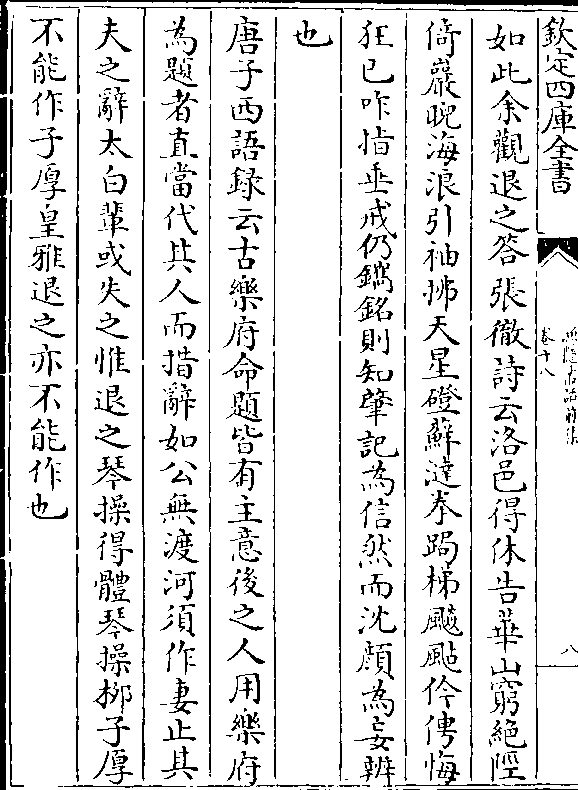 欽定四庫全書
漁隱叢話前集
卷十八
八
如此余觀退之答張徹詩云洛邑得休告華山窮絶陘
倚巖睨海浪引袖拂天星磴蘚澾拳跼梯飈颭伶俜悔
狂已咋指垂戒仍鐫銘則知肇記為信然而沈顔為妄辨
也
唐子西語録云古樂府命題皆有主意後之人用樂府
為題者直當代其人而措辭如公無渡河須作妻止其
夫之辭太白輩或失之惟退之琴操得體琴操栁子厚
不能作子厚皇雅退之亦不能作也